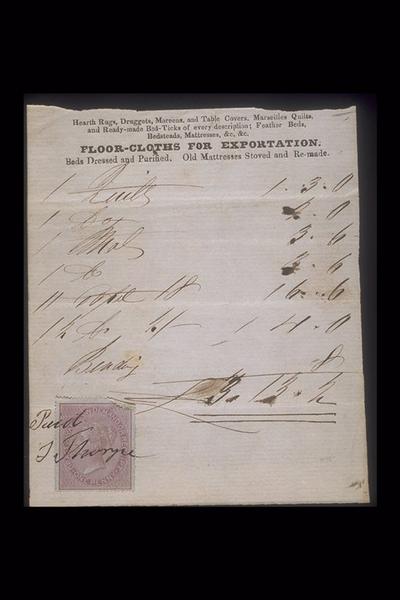 Hearth Rugs, Druggets, Moreens, and Table Covers, Marseilles Quilts,
and Ready-made Bed-Ticks of every description; Feather Beds,
Bedsteads, Mattresses, &c. &c.
FLOOR-CLOTHS FOR EXPORTATION.
Beds Dressed and Purified. Old Mattresses Stoved and Re-made.
1 Quilt 1. 3. 0
1 4. 0
1 Mat 3. 6
1 Do 3. 6
11 18 16. 6
1 4. 0
Binding 8
3. 13. 2
Paid
J Thorpe
ONE PENNY